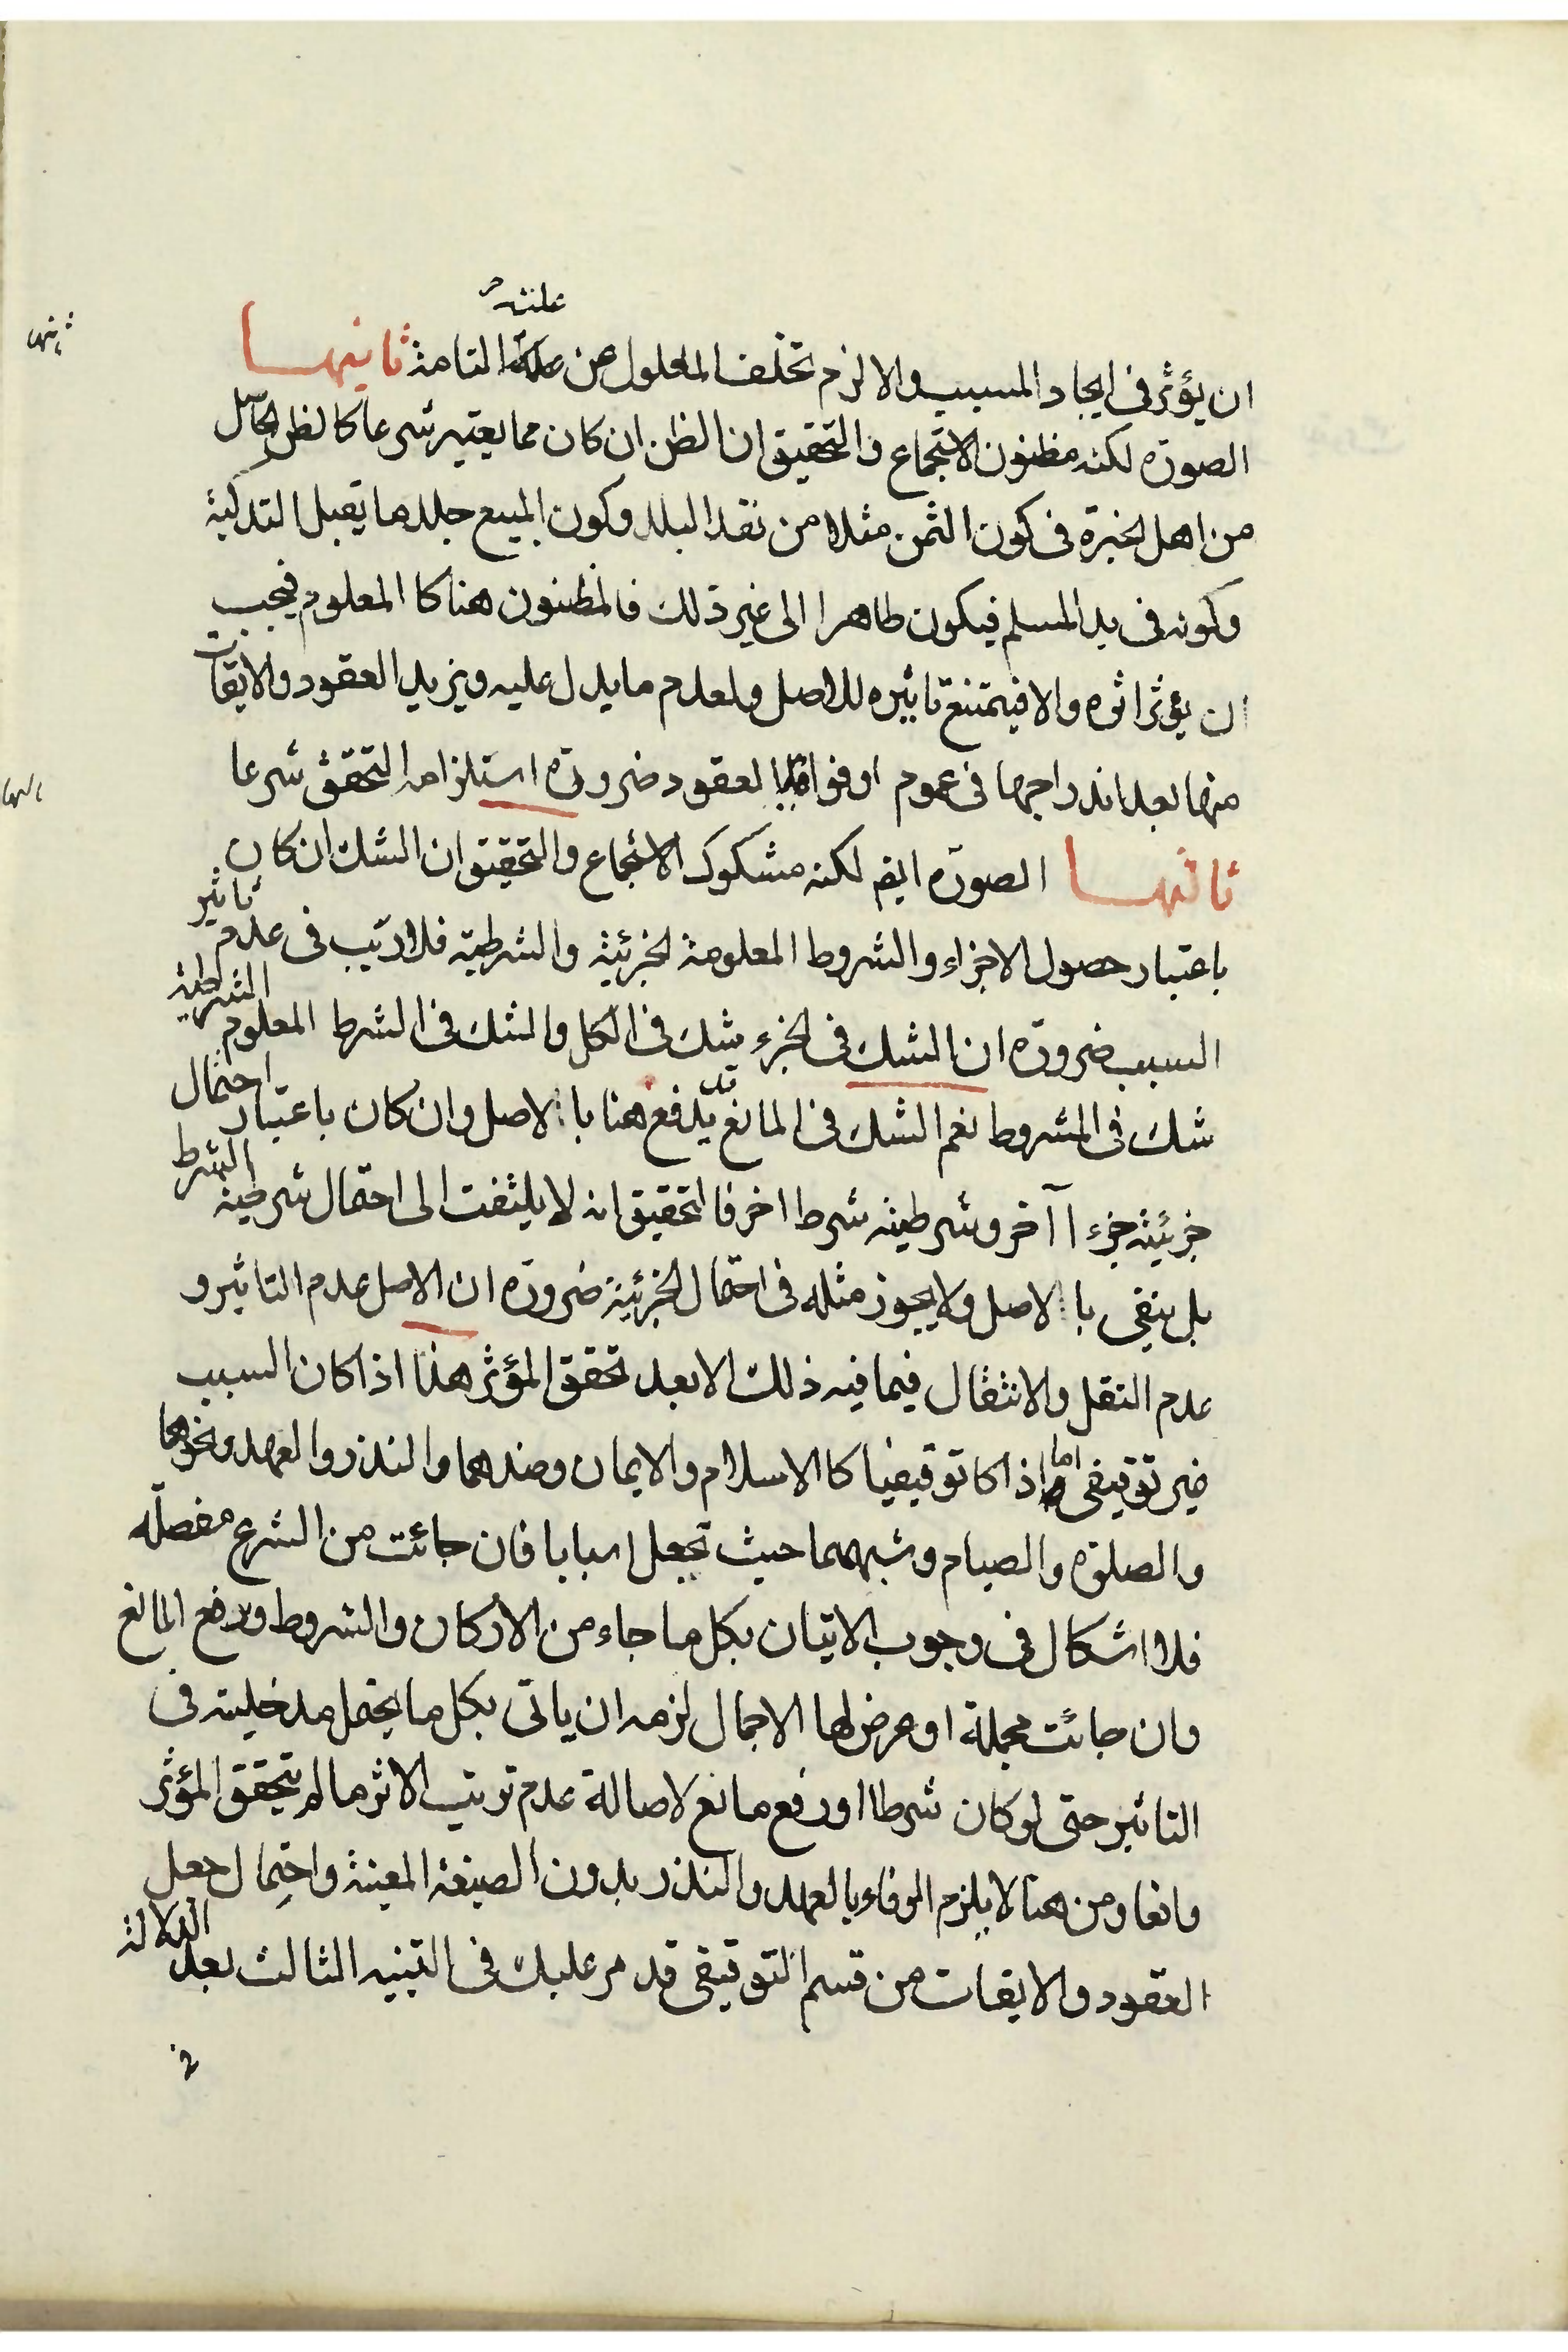 علته
ان يؤثر فى ايجاد المسبب والا لزم تخلف المعلول عن علة التامة ثانيها
الصورة لكنه مظنون الاستجماع والتحقيق ان الظن ان كان مما يعتبر شرعا كالظن الحاصل
من اهل الخبرة فى كون الثمن مثلا من نقد البلد وكون المبيع جلد ما يقبل التذكية
وكونه فى يد المسلم فيكون طاهرا الى غير ذلك فالمظنون هنا كا المعلوم فيجب
ان يؤثر اثره والا فيمتنع تاثيره للاصل ولعدم ما يدل عليه ويزيد العقود والايقات
منها بعد اندراجها فى عموم اوفوا بالعقود ضرورة استلزامه التحقق شرعا
ثالثها الصورة ايضم لكنه مشكوك الاستجماع والتحقيق ان الشك ان كان
باعتبار حصول الاجزاء والشروط المعلومة الجزئية والشرطية فلا ريب فى عدم تاثير
السبب ضرورة ان الشك فى الجزء شك فى الكل والشك فى الشرط المعلوم الشرطية
شك فى المشروط نعم الشك فى المانع يدفع هنا با الاصل وان كان باعتبار احتمال
جزئية جزء ا آخر وشرطية شرط اخر فا التحقيق انه لا يلتفت الى احتمال شرطية الشرط
بل ينفى با الاصل ولا يجوز مثله فى احتمال الجزئية ضرورة ان الاصل عدم التاثير و
عدم النقل والانتقال فيما فيه ذلك الا بعد تحقق المؤثر هذا اذا كان السبب
غير توقيفى اما اذا كا توقيفيا كا الاسلام والايمان وضدهما والنذر والعهد ونحوهما
والصلوة والصيام وشبههما حيث تجعل اسبابا فان جائت من الشرع مفصله
فلا اشكال فى وجوب الاتيان بكل ما جاء من الاركان والشروط ورفع المانع
وان جائت مجملة او عرض لها الاجمال لزمه ان ياتى بكل ما يحتمل مدخليته فى
التاثير حتى لو كان شرطا او رفع مانع لاصالة عدم ترتيب الاثر ما لم يتحقق المؤثر
وانعا ومن هنا لا يلزم الوفاء بالعهد والنذر بدون الصيغة المعينة واحتمال جعل
العقود والايقات من قسم التوقيفى قد مر عليك فى التنبيه الثالث بعد الدلالة